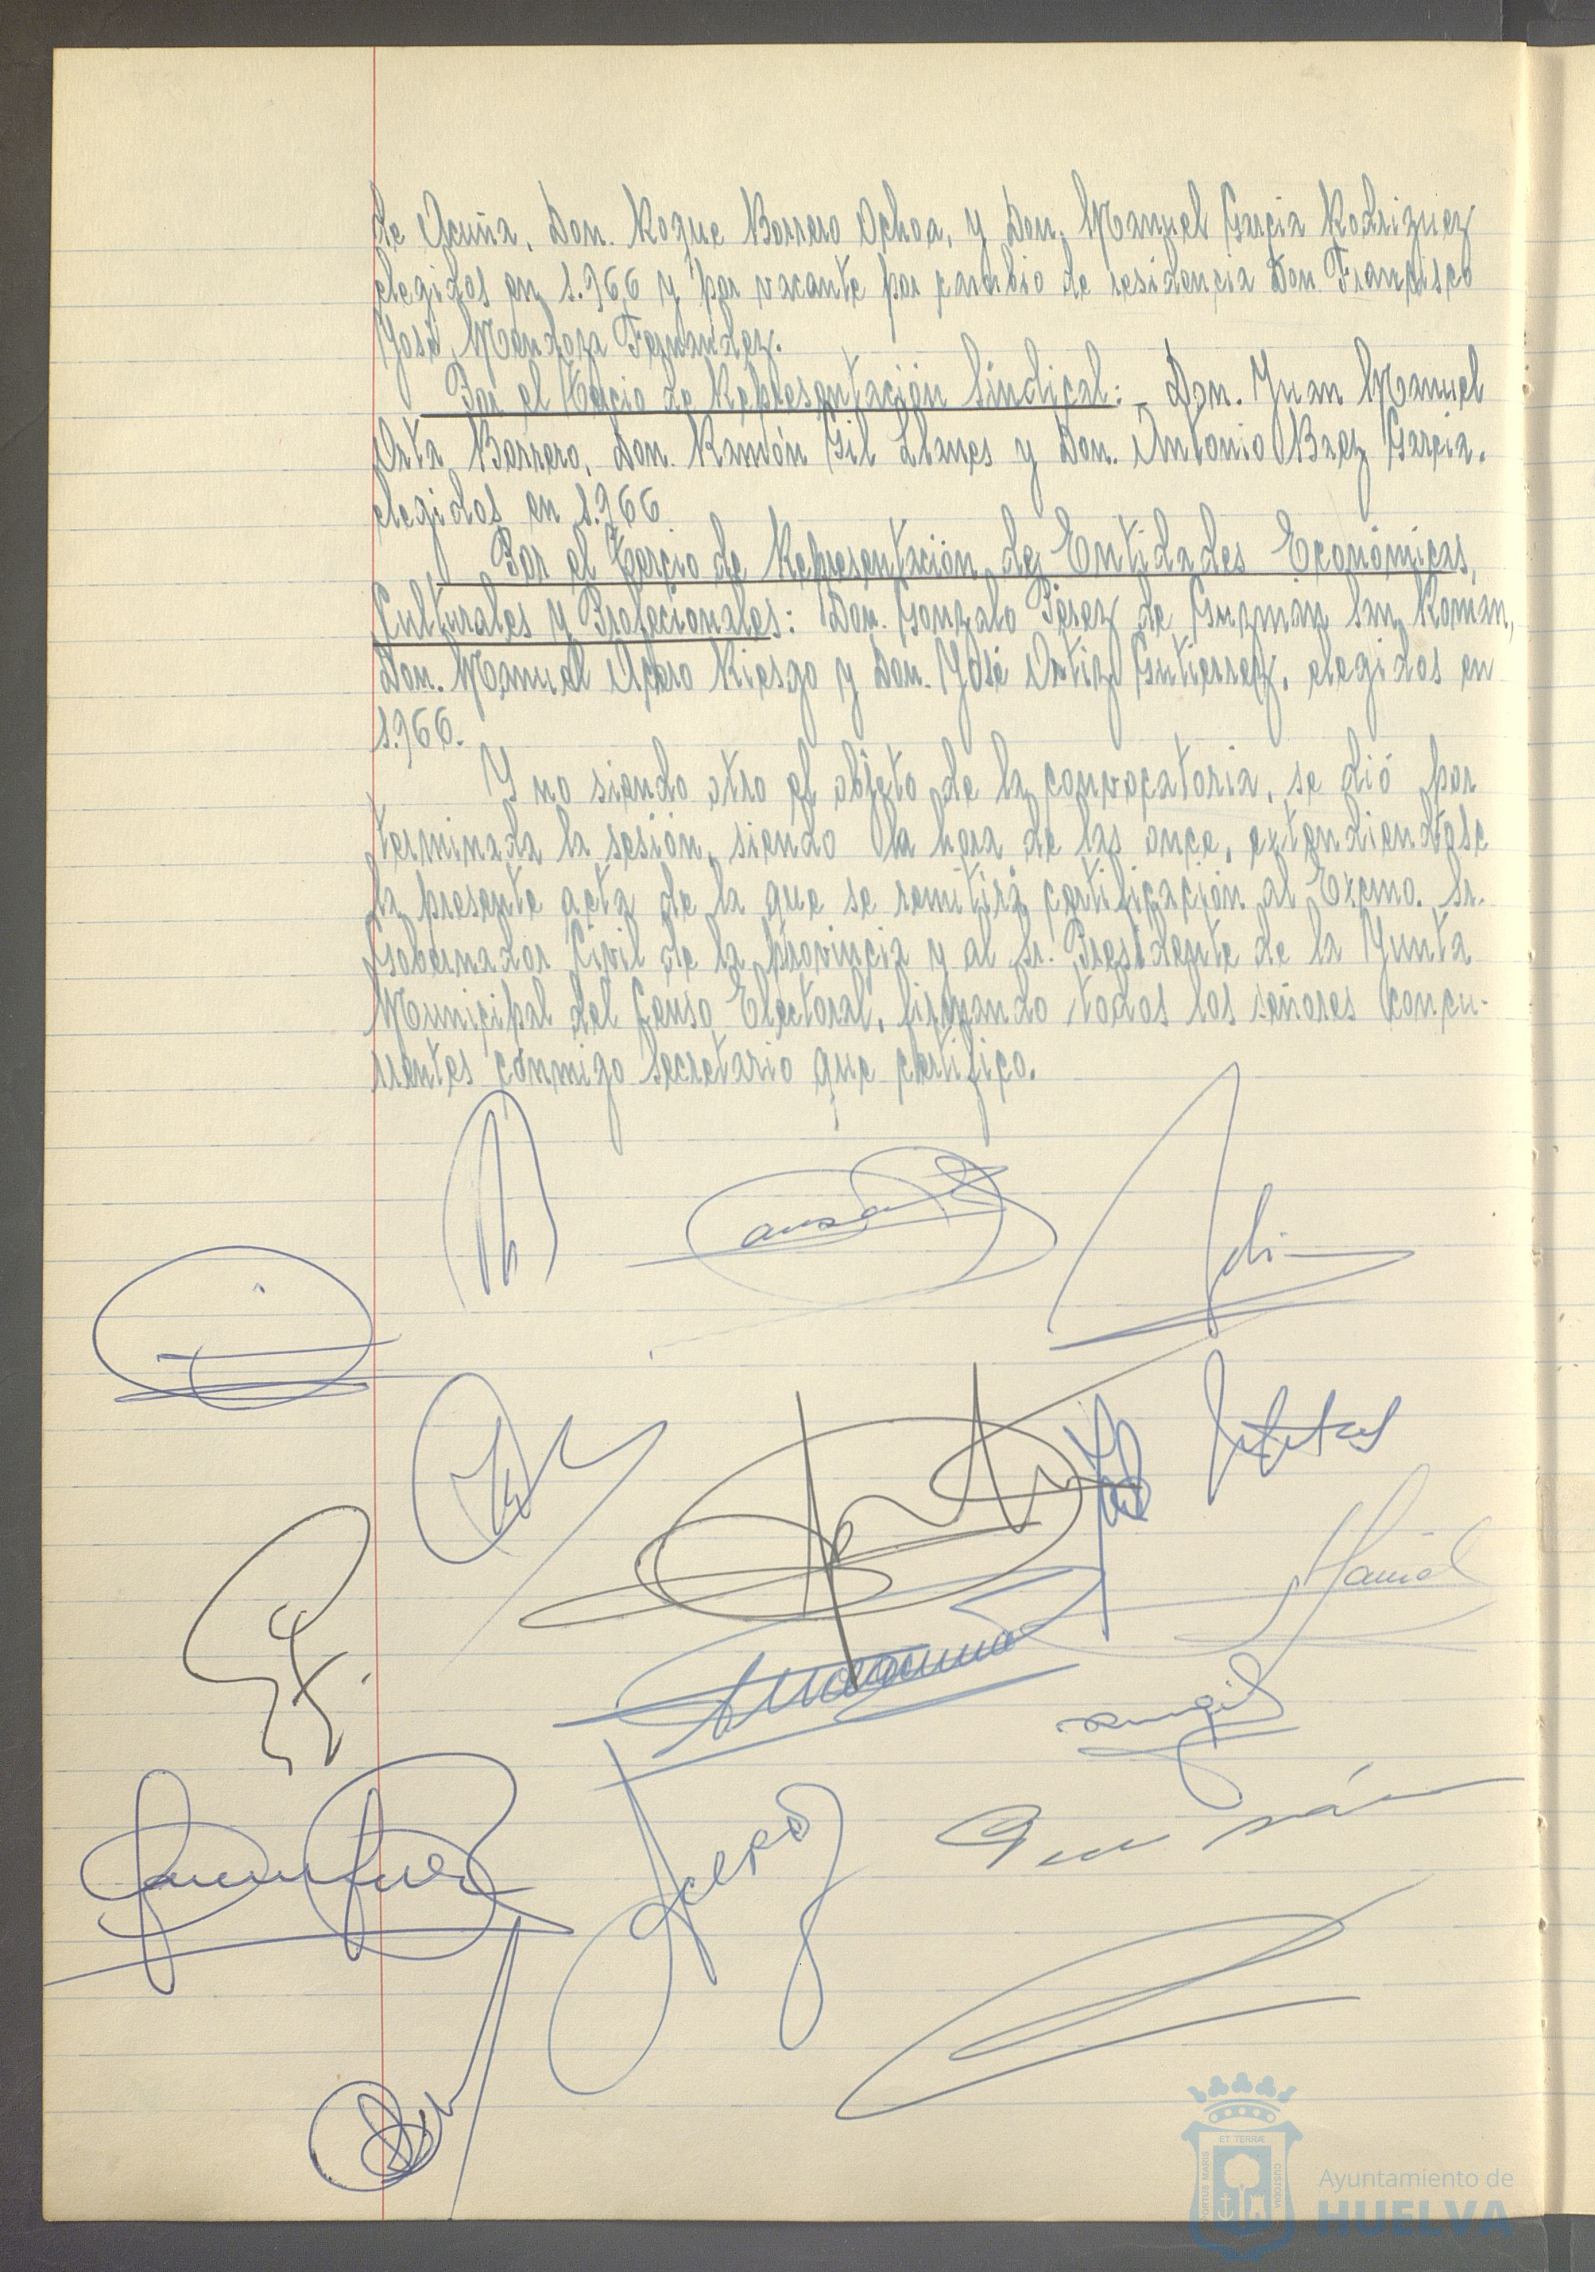 de Acuña, Don. Roque Borrero Ochoa, y Don, Manuel Garcia Rodriguez
elegidos en 1.966 y por vacante por cambio de residencia Don Francisco
José Mendoza Fernandez.
Por el Tercio de Representación Sindical: - Don. Juan Manuel
Orta Borrero, Don. Ramón Gil Llanes y Don. Antonio Baez Garcia.
elegidos en 1.966
Por el Tercio de Representación de Entidades Económicas,
Culturales y Profecionales: Don. Gonzalo Pérez de Guzman San Roman,
Don. Manuel Acero Riesgo y Don. José Ortiz Gutierrez, elegidos en
1.966.
Y no siendo otro el objeto de la convocatoria, se dió por
terminada la sesión, siendo la hora de las once, extendiendose
la presente acta de la que se remitirá certificación al Excmo. Sr.
Gobernador Civil de la provincia y al Sr. Presidente de la Junta
Municipal del Censo Electoral, firmando todos los señores concu-
rrentes conmigo Secretario que certifico.
Acero
PORTUS MARIS ET TERRÆ CUSTODIA
Ayuntamiento de
HUELVA